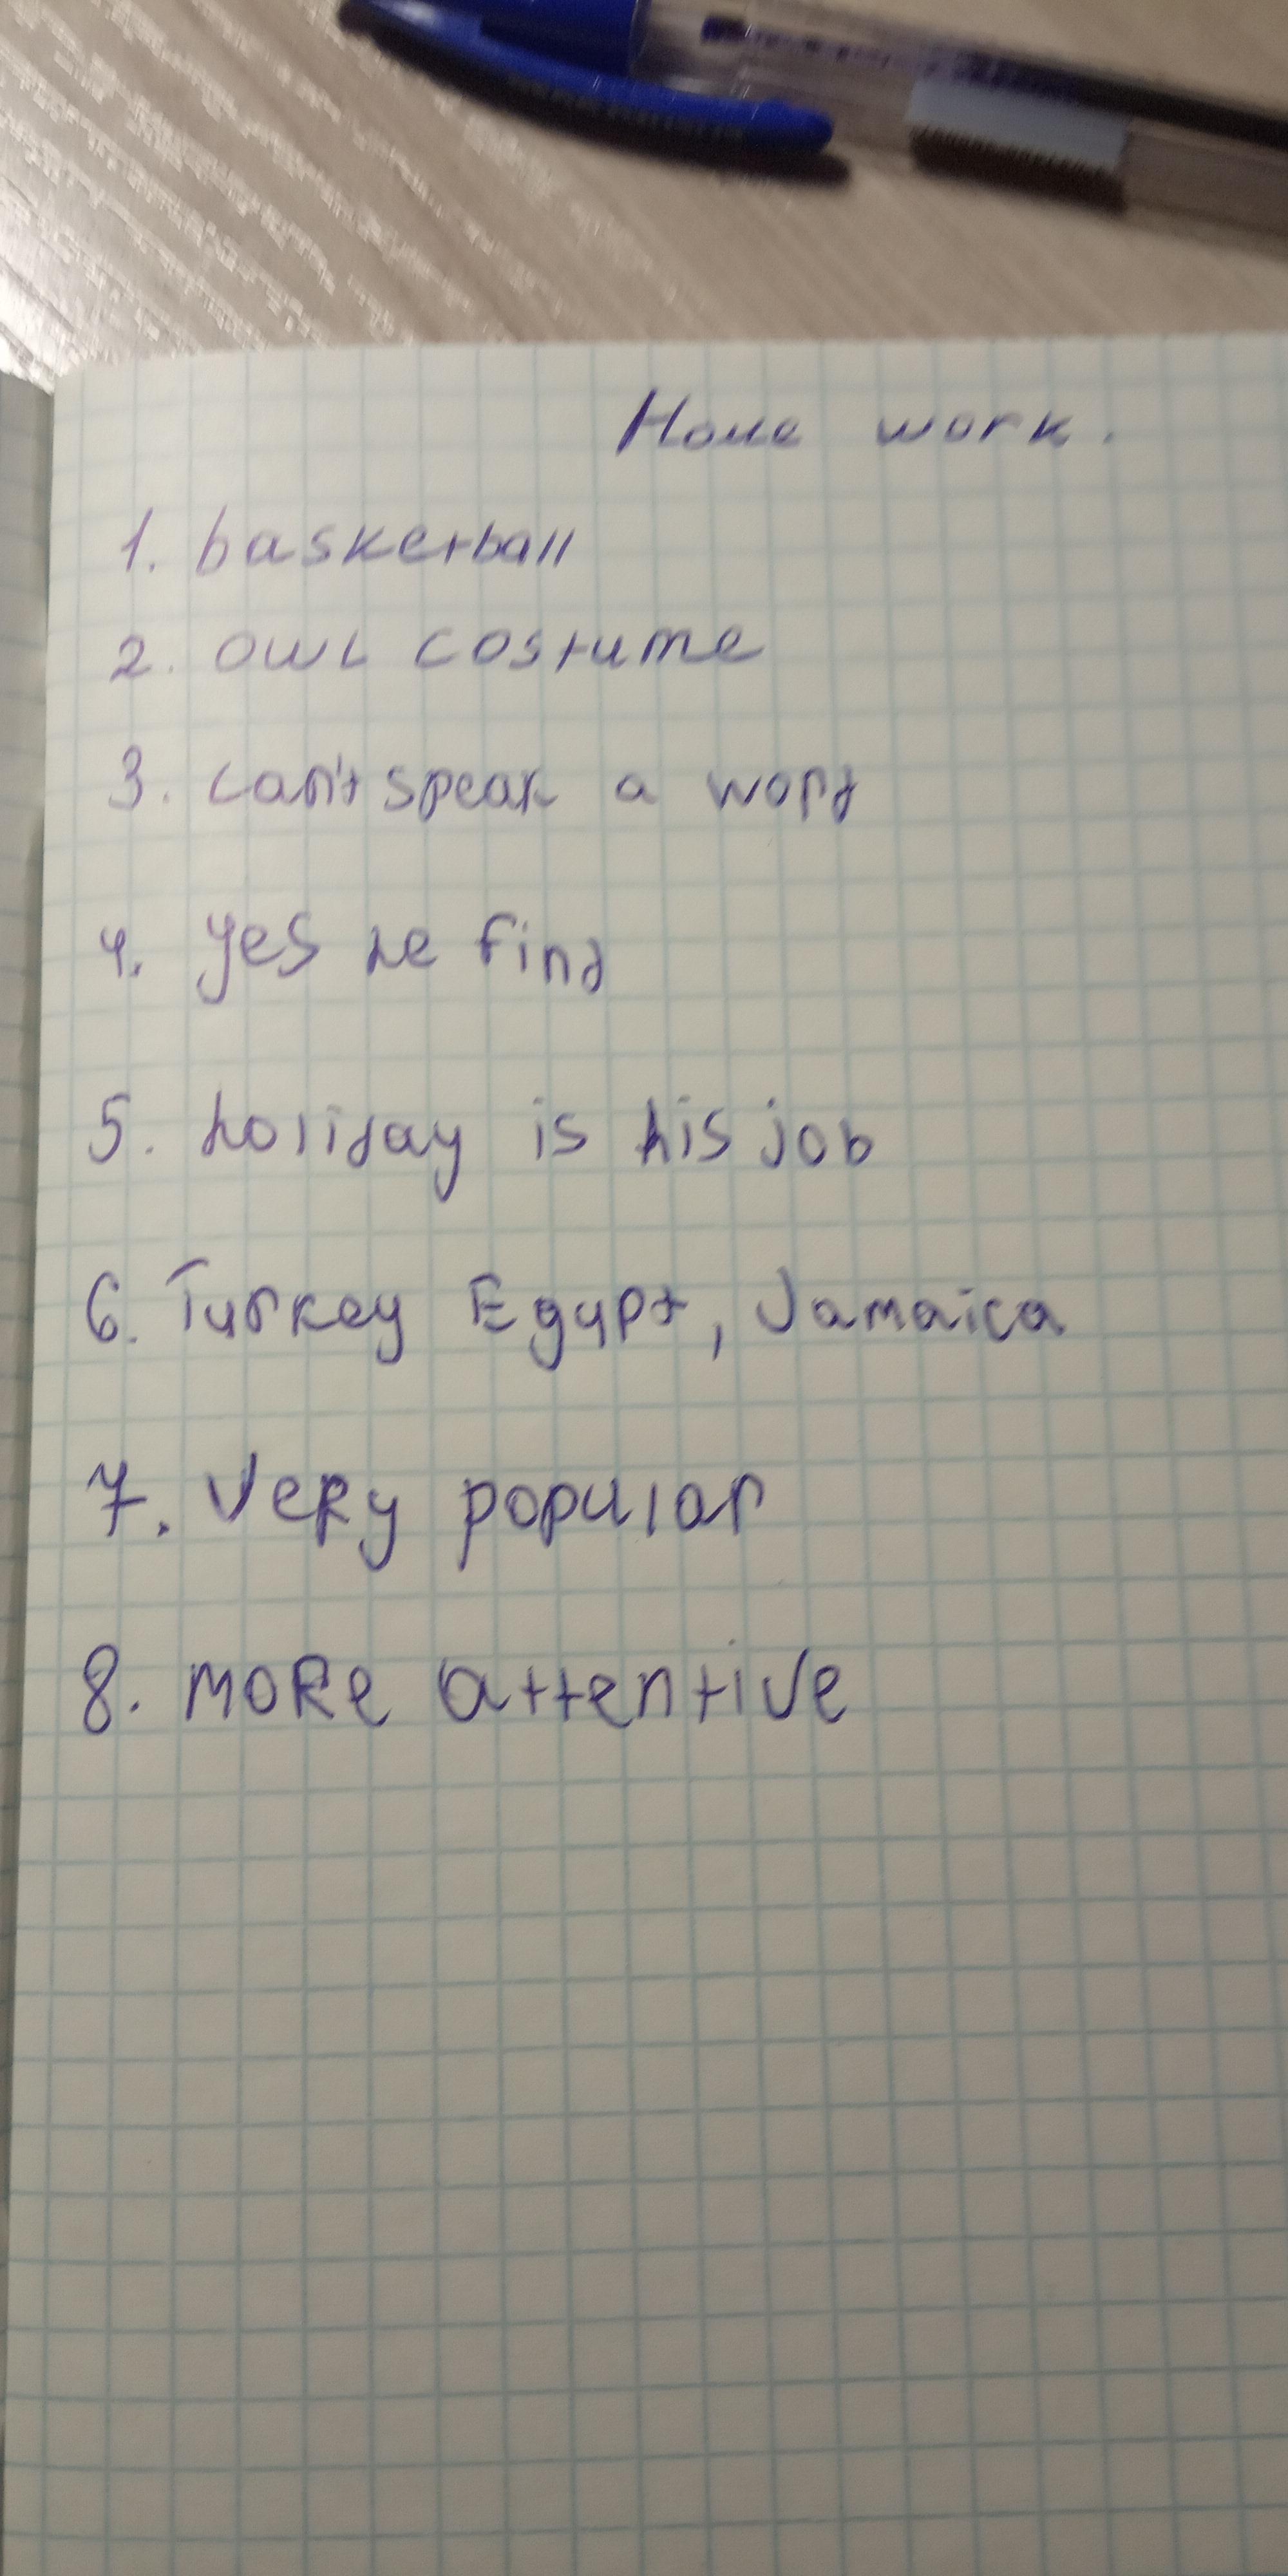 Home work.
1. basketball
2. owl costume
3. can't speak a word
4. yes he find
5. holiday is his job
6. Turkey Egypt, Jamaica
7. Very popular
8. more attentive